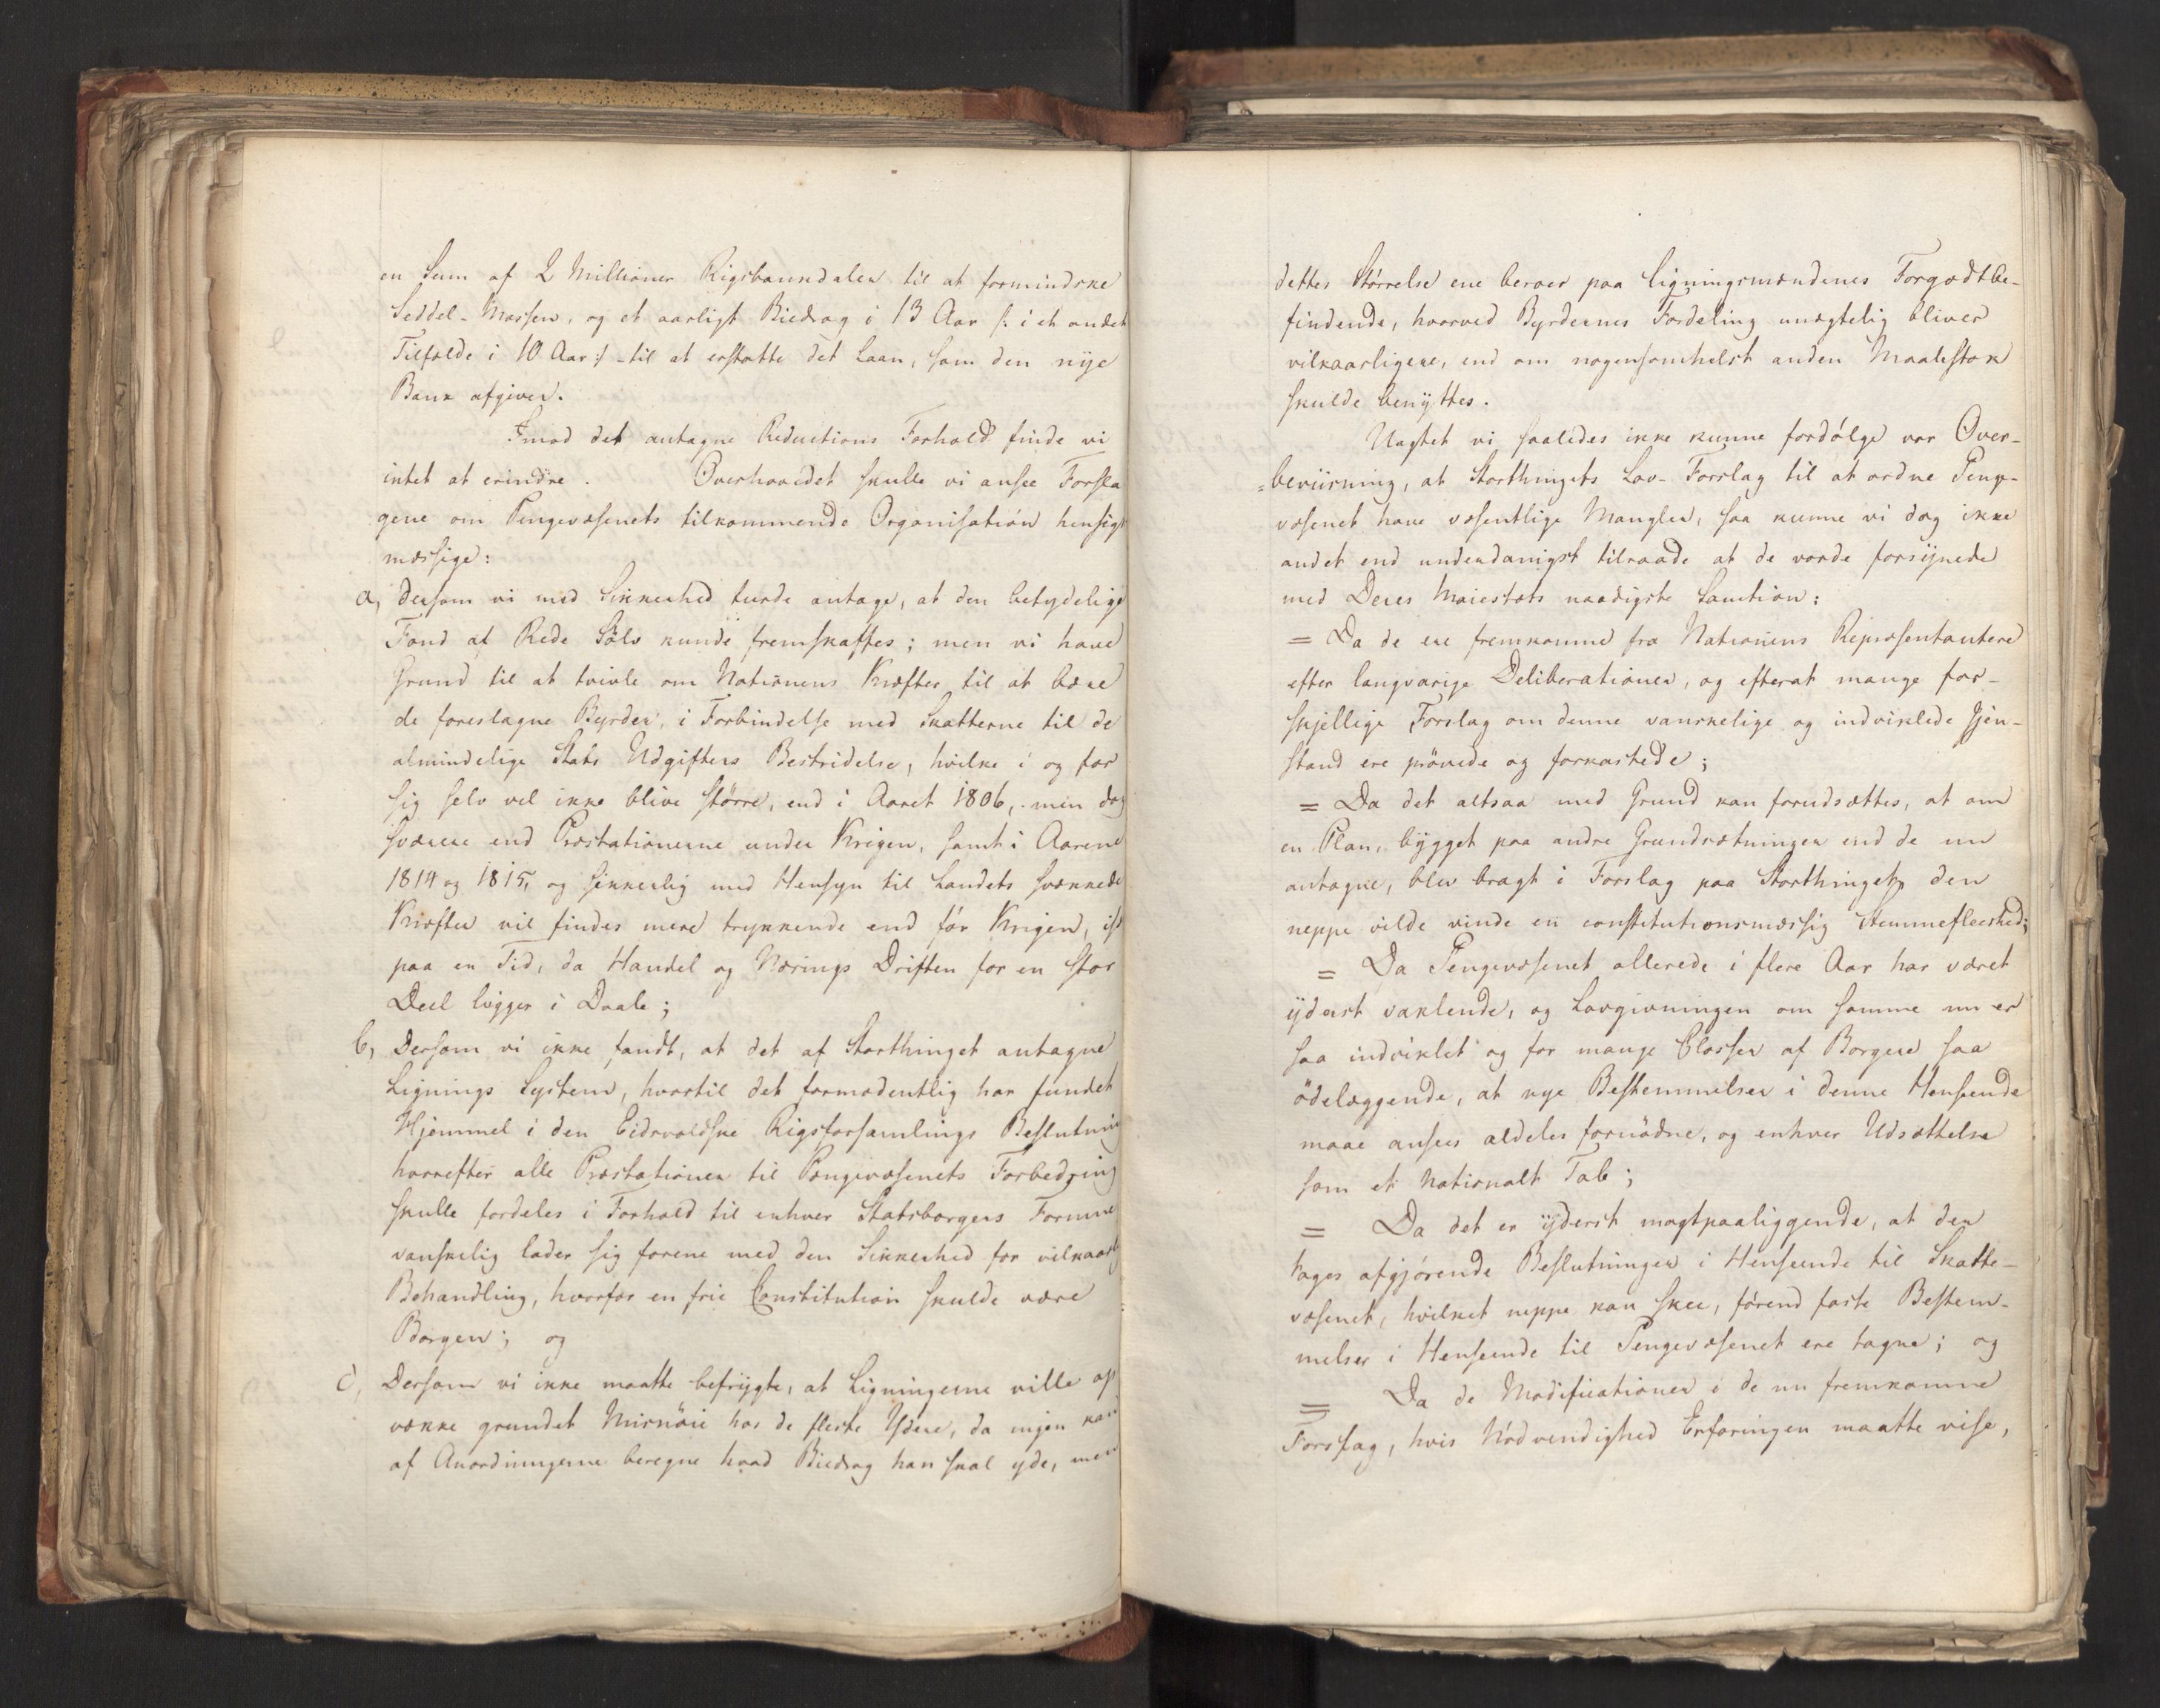 en Sum af 2 Millioner Rigsbankdaler til at formindske
Seddel-Massen, og et aarligt Biedrag i 13 Aar /: i et andet
Tilfælde i 10 Aar :/ til at erstatte det Laan, som den nye
Bank afgiver.
Imod det antagne Reductions Forhold finde vi
intet at erindre. Overhovedet skulle vi ansee Forsla
gene om Pengevæsenets tilkommende Organisation hensigt
mæssige:
a, dersom vi med Sikkerhed turde antage, at den betydelige
Fond af Rede Sølv kunde fremskaffes; men vi have
Grund til at tvivle om Nationens Kræfter til at bære
de foreslagne Byrder, i Forbindelse med Skatterne til de
almindelige Stats Udgifters Bestridelse, hvilke i og for
sig selv vel ikke blive större, end i Aaret 1806, men dog
sværere end Præstationerne under Krigen, samt i Aarene
1814 og 1815, og sikkerlig med Hensyn til Landets svækkede
Kræfter vil findes mere trykkende end för Krigen, isr
paa en Tid, da Handel og Nærings Driften for en stor
Deel ligger i Dvale;
b, Dersom vi ikke fandt, at det af Storthinget antagne
Lignings System, hvortil det formodentlig har fundet
Hjemmel i den Eidsvoldske Rigsforsamlings Beslutning
hvorefter alle Præstationer til Pengevæsenets Forbedring
skulle fordeles i Forhold til enhver Statsborgers Formue
vanskelig lader sig forene med den Sikkerhed for vilkaarlig
Behandling, hvorfor en frie Constitution skulde være
Borgen; og
c, Dersom vi ikke maatte befrygte, at Ligningerne ville op
vække grundet Misnöie hos de fleste Ydere, da ingen kan
af Anordningerne beregne hvad Biedrag han skal yde, men
dettes Störrelse ene beroer paa Ligningsmændenes Forgodtbe-
findende, hvorved Byrdernes Fordeling unægtelig bliver
vilkaarligere, end om nogensomhelst anden Maalestok
skulde benyttes.
Uagtet vi saaledes ikke kunne fordölge vor Over-
=beviisning, at Storthingets Lov-Forslag til at ordne Penge-
væsenet have væsentlige Mangler, saa kunne vi dog ikke
andet end underdanigst tilraade at de vorde forsynede
med Deres Maiestæts naadigste Sanction:
= Da de ere fremkomne fra Nationens Repræsentantere
efter langvarige Deliberationer, og efterat mange for-
skjellige Forslag om denne vanskelige og indviklede Gjen-
stand ere prövede og forkastede;
= Da det altsaa med Grund kan forudsættes, at om
en Plan, bygget paa andre Grundsætninger end de nu
antagne, blev bragt i Forslag paa Storthinget, den
neppe vilde vinde en constitutionsmæssig Stemmefleerhed;
= Da Pengevæsenet allerede i flere Aar har været
yderst vaklende, og Lovgivningen om samme nu er
saa indviklet og for mange Classer af Borgere saa
ödelæggende, at nye Bestemmelser i denne Henseende
maae ansees aldeles fornödne, og enhver Udsættelse
som et Nationalt Tab;
= Da det er yderst magtpaaliggende, at der
tages afgjörende Beslutninger i Henseende til Skatte-
væsenet, hvilket neppe kan skee, förend faste Bestem-
melser i Henseende til Pengevæsenet ere tagne; og
= Da de Modificationer i de nu fremkomne
Forslag, hvis Nödvendighed Erfaringen maatte vise,